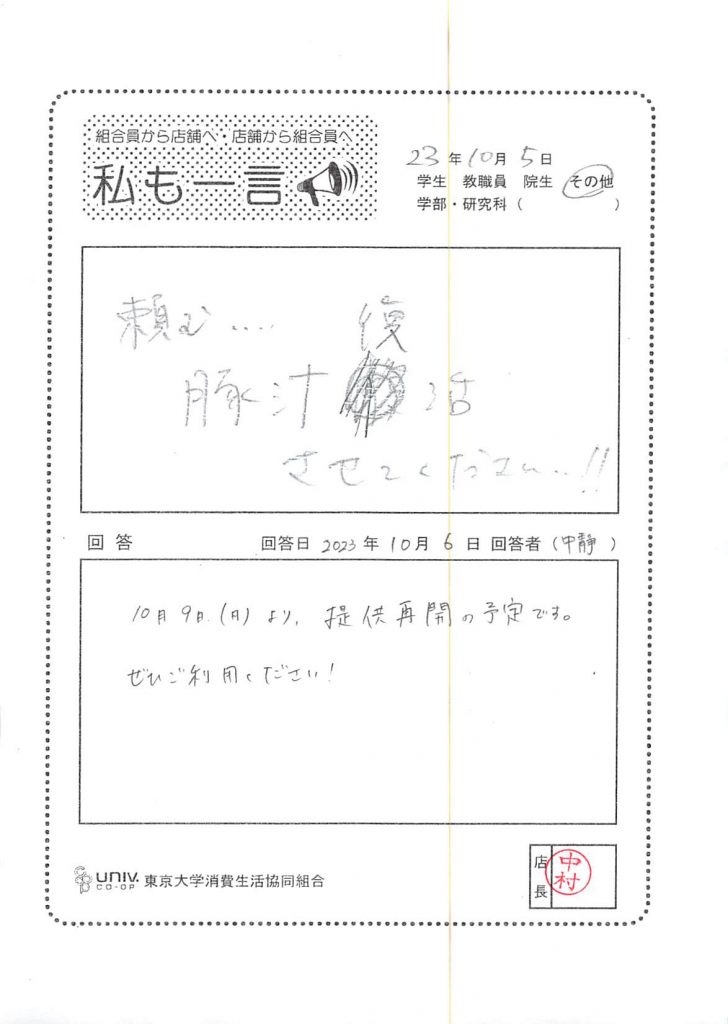 組合員から店舗へ・店舗から組合員へ
私も一言
23年10月5日
学生 教職員 院生 その他
学部・研究科( )
頼む‥‥ 復
豚汁 活
させてください‥!!
回答 回答日 2023年10月6日 回答者(中静)
10月9日(月)より、提供再開の予定です。
ぜひご利用ください!
UNIV. CO-OP 東京大学消費生活協同組合
店長 中村